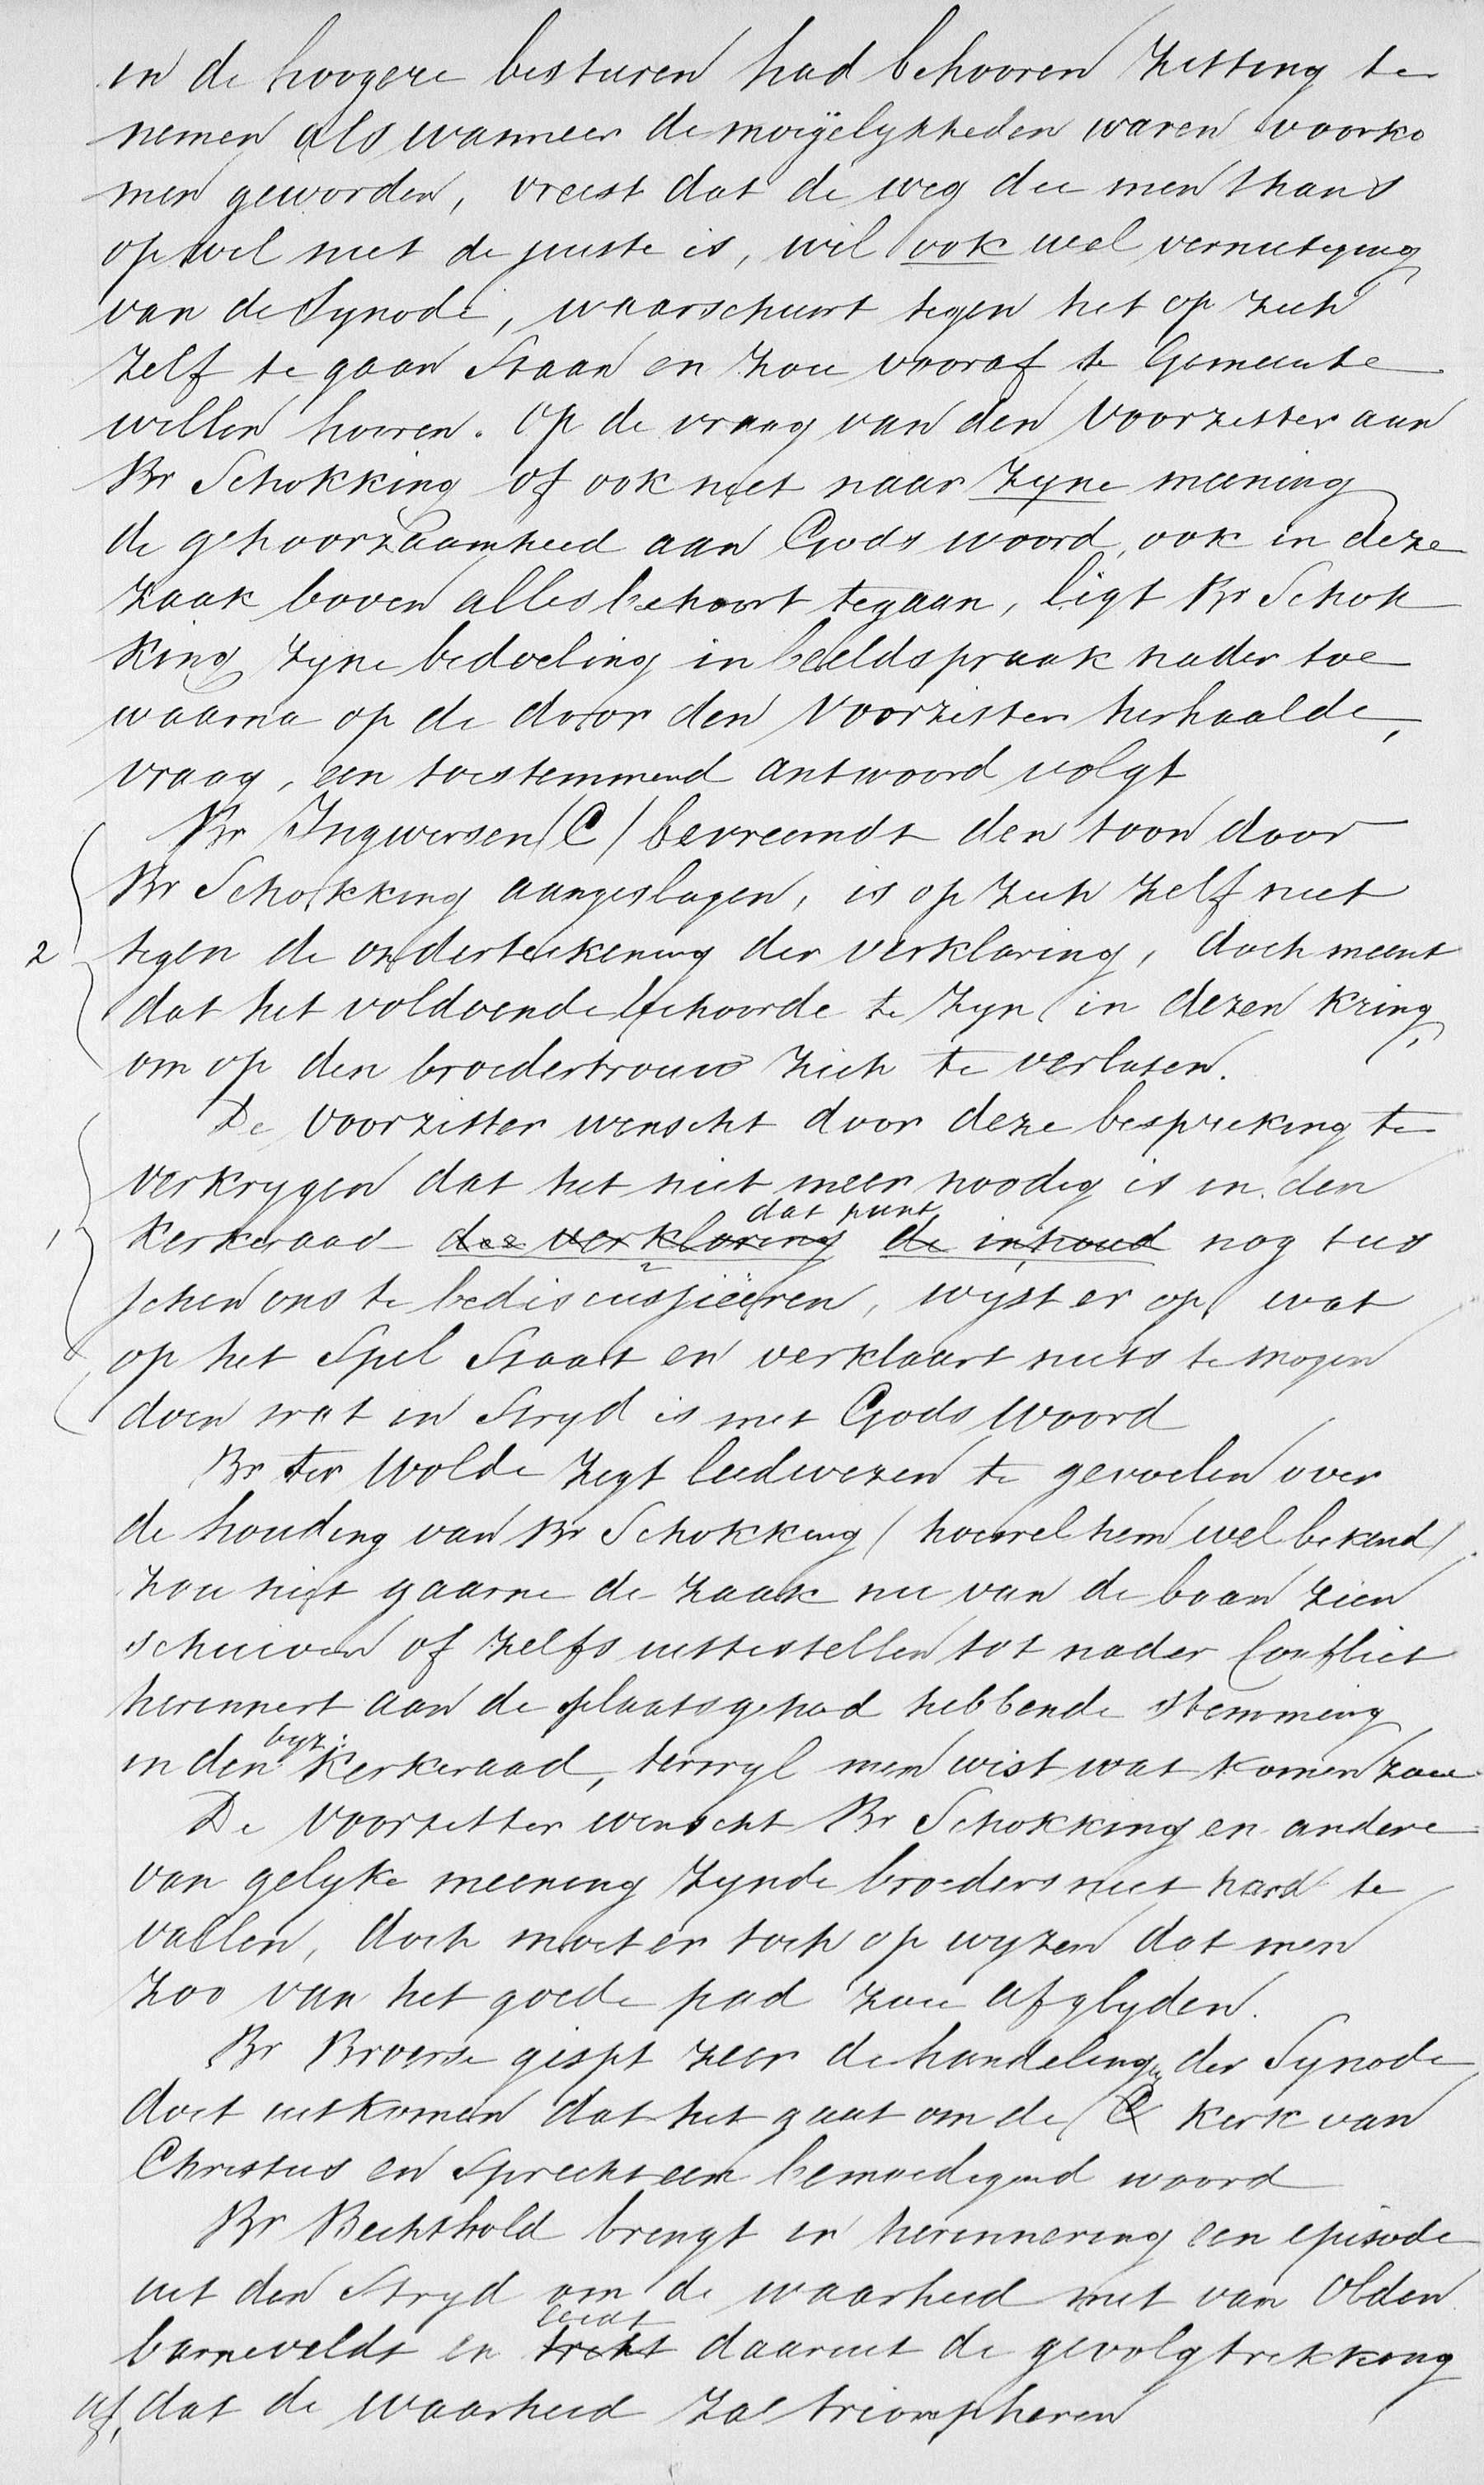 in de hoogere besturen had behooren zitting te
nemen als wanneer de moeijelykheden waren voorko
men geworden, vreest dat de weg die men thans
op wil niet de juiste is, wil ook wel vernietiging
van de Synode, waarschuwt tegen het op zich
zelf te gaan staan en zou vooraf de Gemeente
willen hooren. Op de vraag van den Voorzitter aan
Br Schokking of ook niet naar zyne meening
de gehoorzaamheid aan Gods woord, ook in deze
zaak boven alles behoort te gaan, ligt Br Schok
king zyne bedoeling in beeldspraak nader toe
waarna op de door den Voorzitter herhaalde,
vraag, een toestemmend antwoord volgt
Br Ingwersen (C) bevreemdt den toon door
Br Schokking aangeslagen, is op zich zelf niet
2 tegen de onderteekening der verklaring, doch meent
dat het voldoende behoorde te zyn in dezen kring,
om op den broedertrouw zich te verlaten.
De voorzitter wenscht door deze bespreking te
verkrygen dat het niet meer noodig is in den
dat punt
1 Kerkeraad des verklaring de inhoud nog tus
schen ons te bediscussieeren, wyst er op wat
op het spel staat en verklaart niets te mogen
doen wat in stryd is met Gods woord
Br ter Wolde zegt leedwezen te gevoelen over
de houding van Br Schokking (hoewel hem wel bekend)
zou niet gaarne de zaak nu van de baan zien
schuiven of zelfs uittestellen tot nader Conflict
herinnert aan de plaatsgehad hebbende stemming
byz:
in den Kerkeraad, terwyl men wist wat komen zou
De Voorzitter wenscht Br Schokking en andere
van gelyke meening zynde broeders niet hard te
vallen, doch moet er toch op wyzen dat men
zoo van het goede pad zou afglyden.
Br Broerse gispt zeer de handelingen der Synode
doet uitkomen dat het gaat om de C kerk van
Christus en spreekt een bemoedigend woord
Br Bechthold brengt in herinnering een episode
uit den stryd om de waarheid met van Olden
leidt
barneveldt en trekt daaruit de gevolgtrekking
af, dat de waarheid zal triompheren